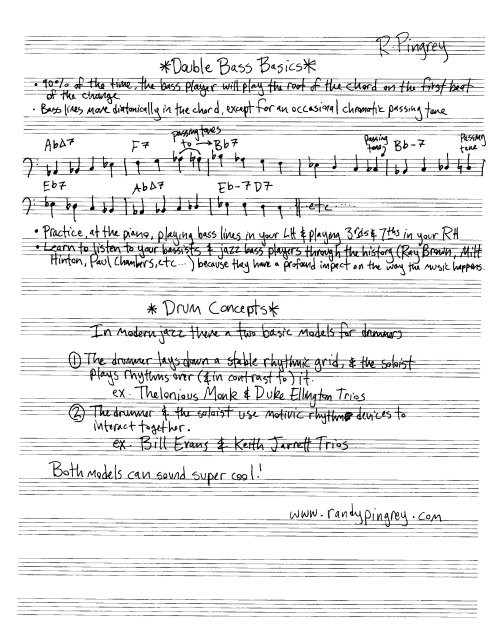 R. Pingrey
*Double Bass Basics*
• 90% of the time, the bass player will play the root of the chord on the first beat
of the change
• Bass lines move diatonically in the chord, except for an occasional chromatic passing tone
passing tones
AbΔ7 F7 to → Bb7 passing tone Bb-7 passing tone
Eb7 AbΔ7 Eb-7 D7
etc.....
• Practice, at the piano, playing bass lines in your LH & playing 3rds & 7ths in your RH
• Learn to listen to your bassists & jazz bass players through the history (Ray Brown, Milt
Hinton, Paul Chambers, etc...) because they have a profound impact on the way the music happens.
* Drum Concepts*
In modern jazz there a two basic models for drummers
① The drummer lays down a stable rhythmic grid, & the soloist
plays rhythms over (& in contrast to) it.
ex. Thelonious Monk & Duke Ellington Trios
② The drummer & the soloist use motivic rhythm devices to
interact together.
ex. Bill Evans & Keith Jarrett Trios
Both models can sound super cool!
www.randypingrey.com